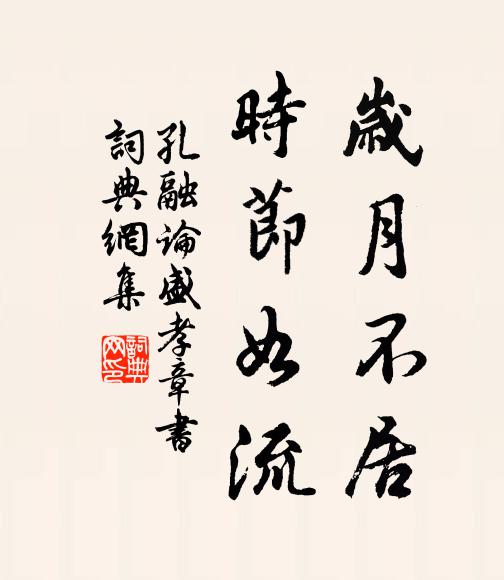 歲月不居
時節如流
孔融論盛孝章書
詞典網集
詞典
网印